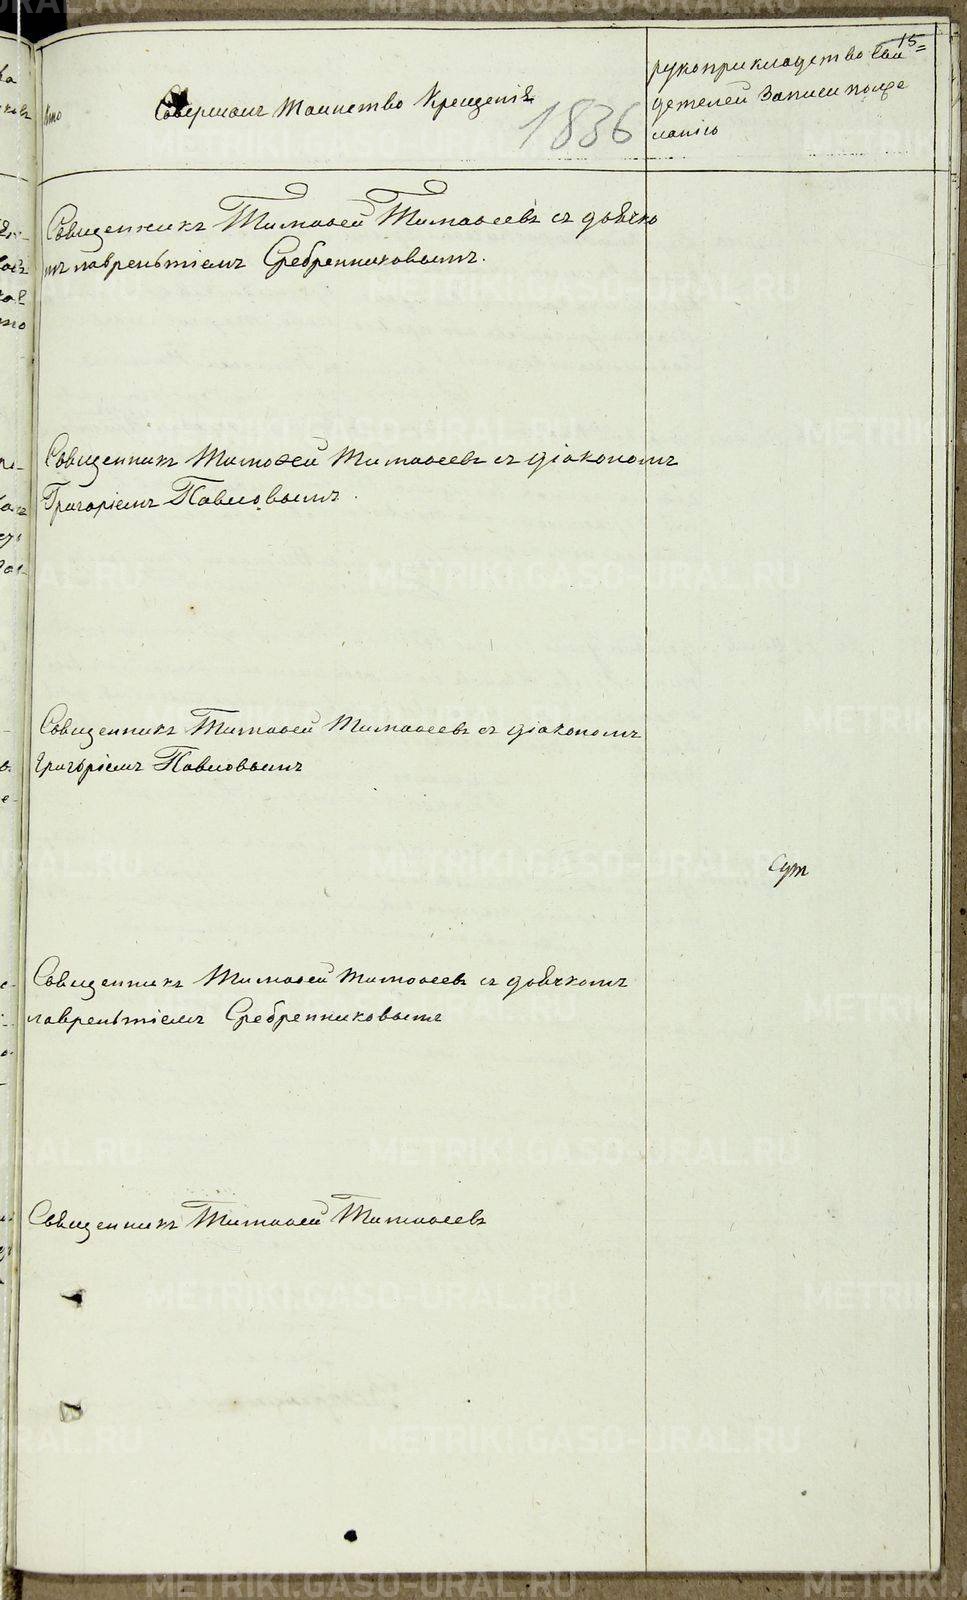 15
Кто Совершалъ Таинство Крещенiя
1836
рукоприкладство Сви
детелей Записи по же
ланiю
Священникъ Тимоѳей Тимоѳеевъ съ дьячко
мъ лаврентiемъ Сребренниковымъ.
Священникъ Тимоѳей Тимоѳеевъ съ дiакономъ
Григорiемъ Павловымъ.
Священникъ Тимоѳей Тимоѳеевъ съ дiакономъ
григорiемъ Павловымъ
Сут
Священникъ Тимоѳей Тимоѳеевъ съ дьячкомъ
лаврентiемъ Сребренниковымъ
Священникъ Тимоѳей Тимоѳеевъ
METRIKI.GASO-URAL.RU